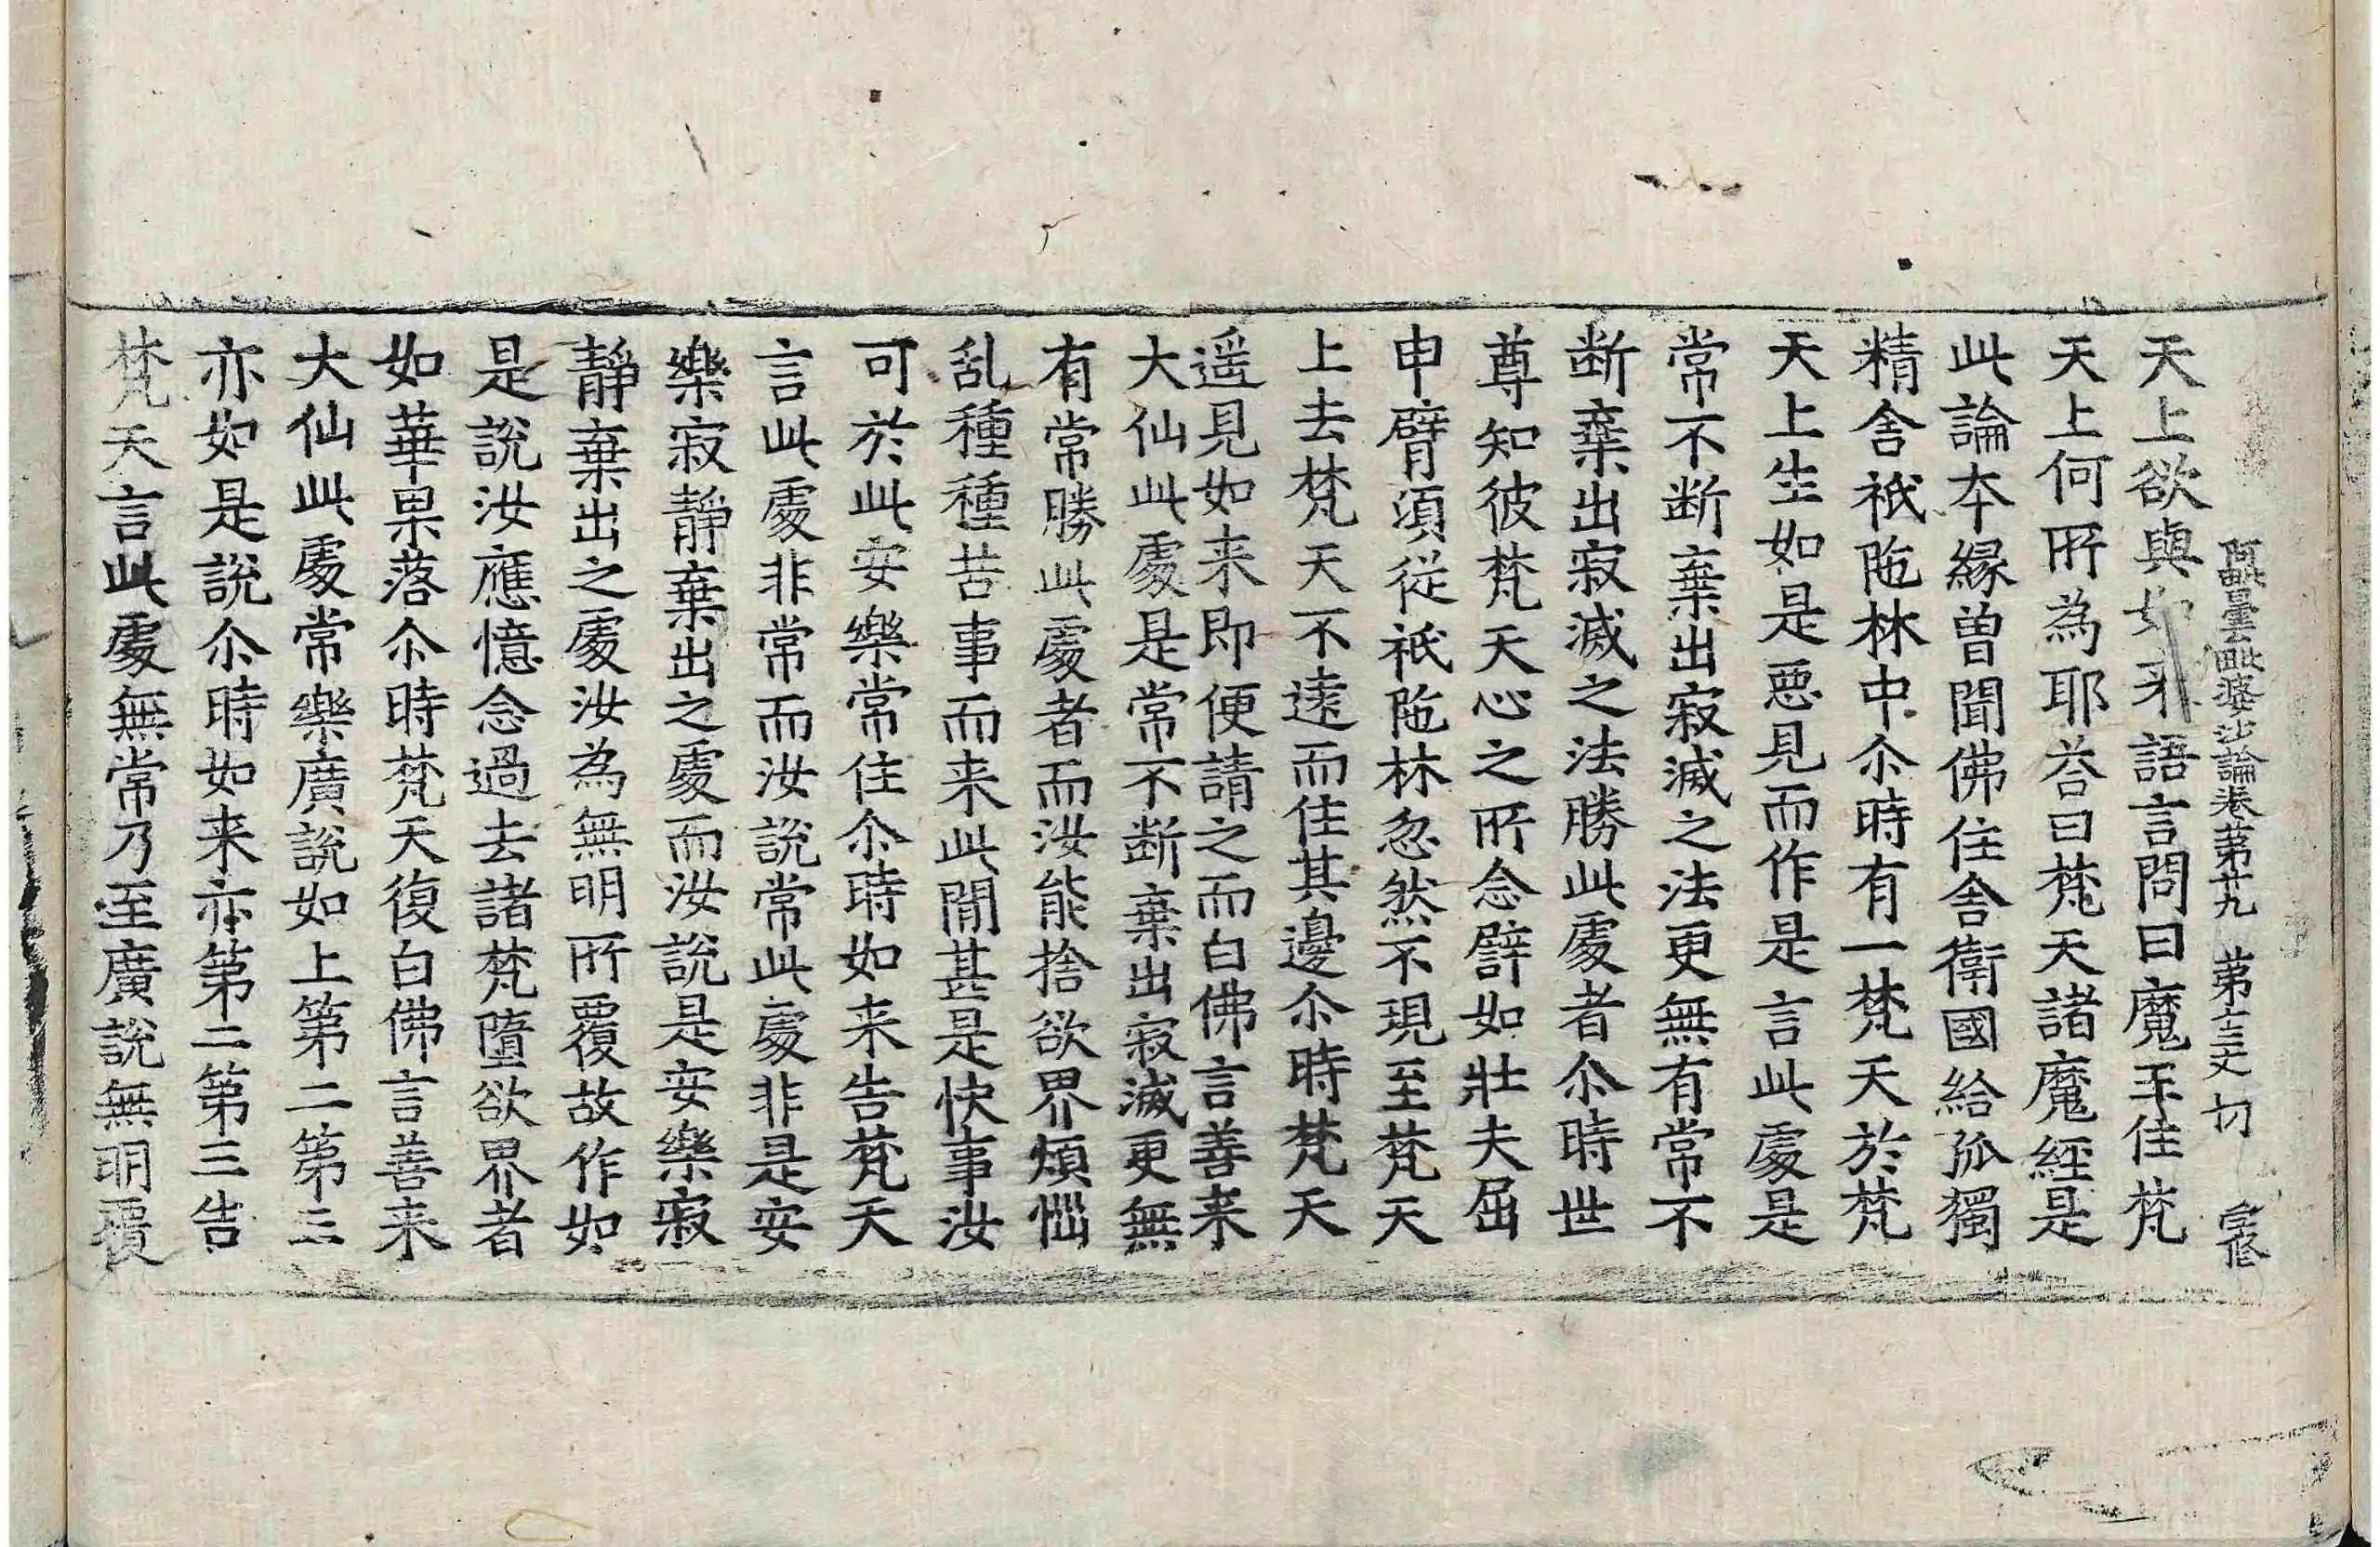 阿毗曇毗婆沙論卷第廿九 第十三丈 切 宗修
天上欲與如来語言問曰魔王住梵
天上何所為耶荅曰梵天諸魔經是
此論本緣曾聞佛住舍衛國給孤獨
精舍祇陁林中尒時有一梵天於梵
天上生如是惡見而作是言此處是
常不断棄出寂滅之法更無有常不
断棄出寂滅之法勝此處者尒時世
尊知彼梵天心之所念譬如壯夫屈
申臂須從祇陁林忽然不現至梵天
上去梵天不遠而住其邊尒時梵天
遥見如来即便請之而白佛言善来
大仙此處是常不断棄出寂滅更無
有常勝此處者而汝能捨欲界煩惱
乱種種苦事而来此閒甚是快事汝
可於此安樂常住尒時如来告梵天
言此處非常而汝說常此處非是安
樂寂靜棄出之處而汝說是安樂寂
靜棄出之處汝為無明所覆故作如
是說汝應憶念過去諸梵墮欲界者
如華果落尒時梵天復白佛言善来
大仙此處常樂廣說如上第二第三
亦如是說尒時如来亦第二第三告
梵天言此處無常乃至廣說無明覆